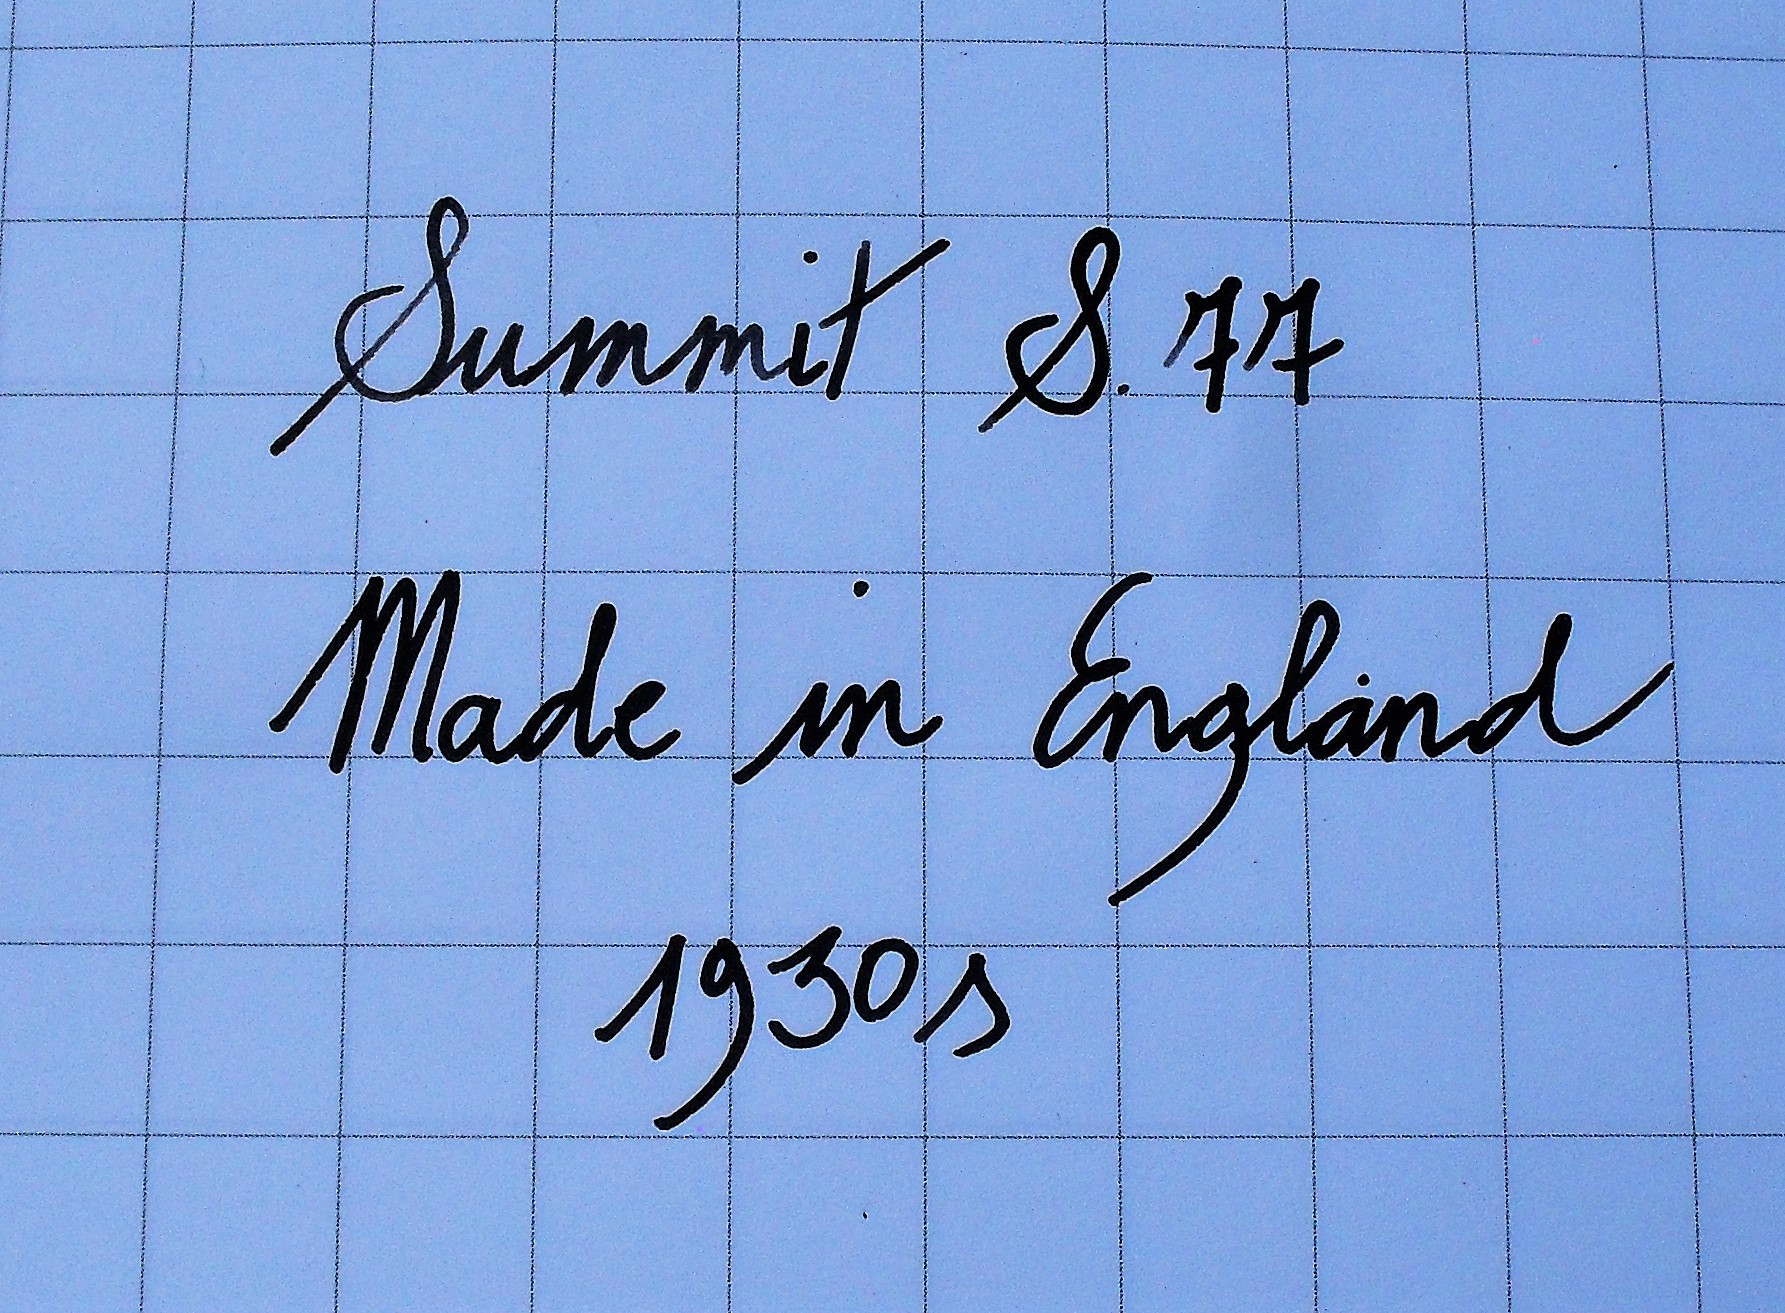 Summit S.77
Made in England
1930s